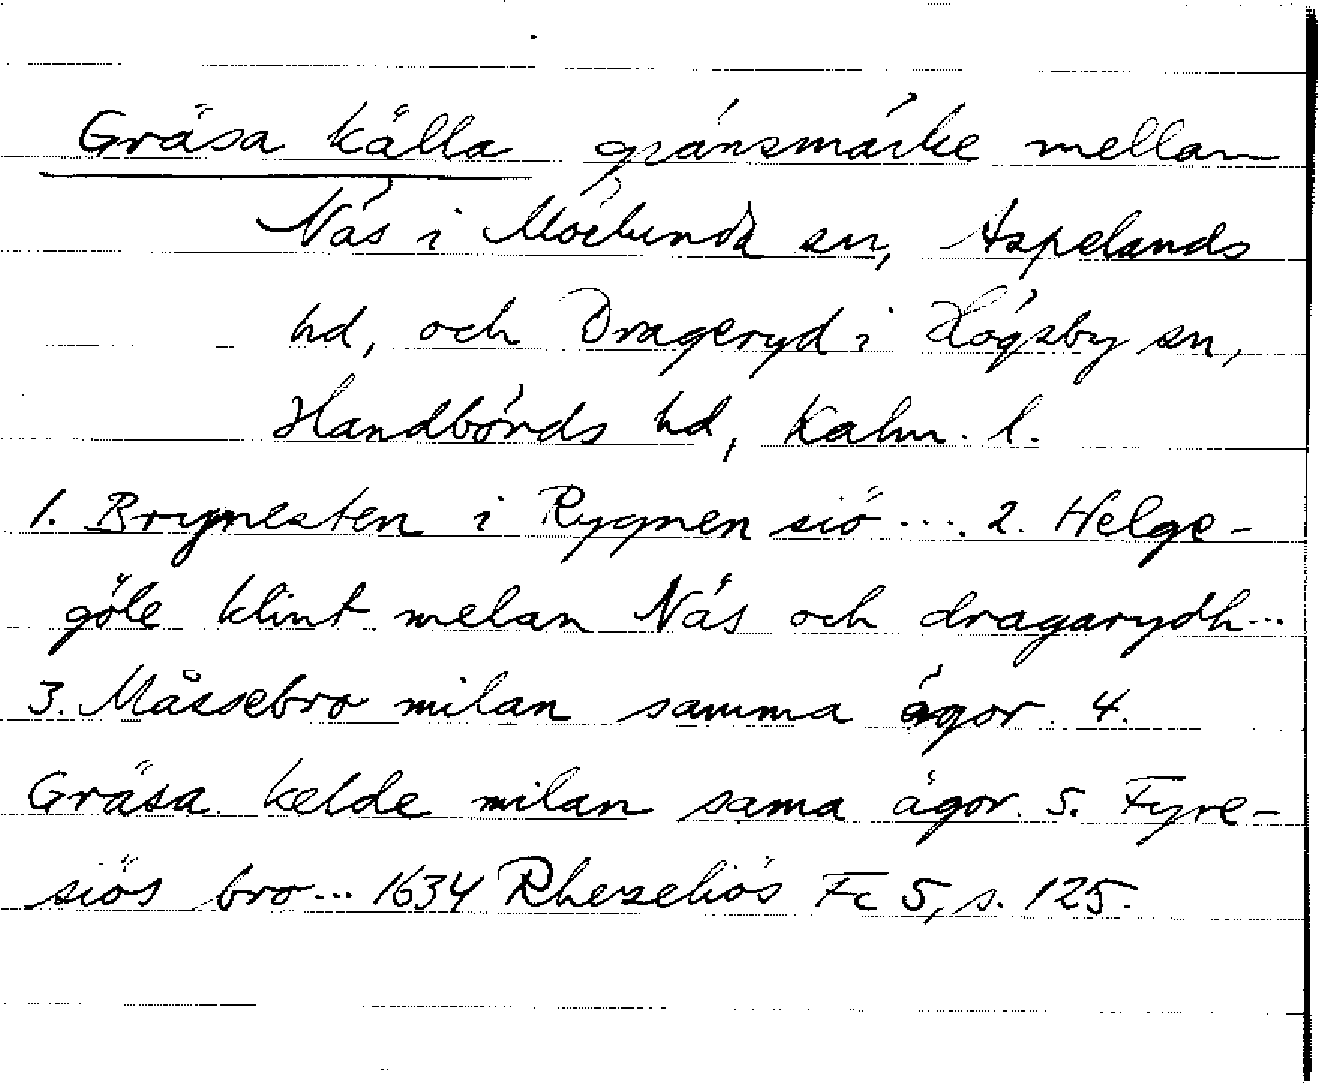 Gräsa källa gränsmärke mellan
Näs i Mörlunda sn, Aspelands
hd, och Drageryd i Högsby sn,
Handbörds hd, Kalm. l.
1. Brynesten i Rygnen siö .... 2. Helge-
göle klint melan Näs och dragarydh...
3. Måssebro milan samma ägor. 4.
Gräsa kelde milan sama ägor. 5. Fyre-
siös bro... 1634 Rhezeliös Fc 5, s. 125.